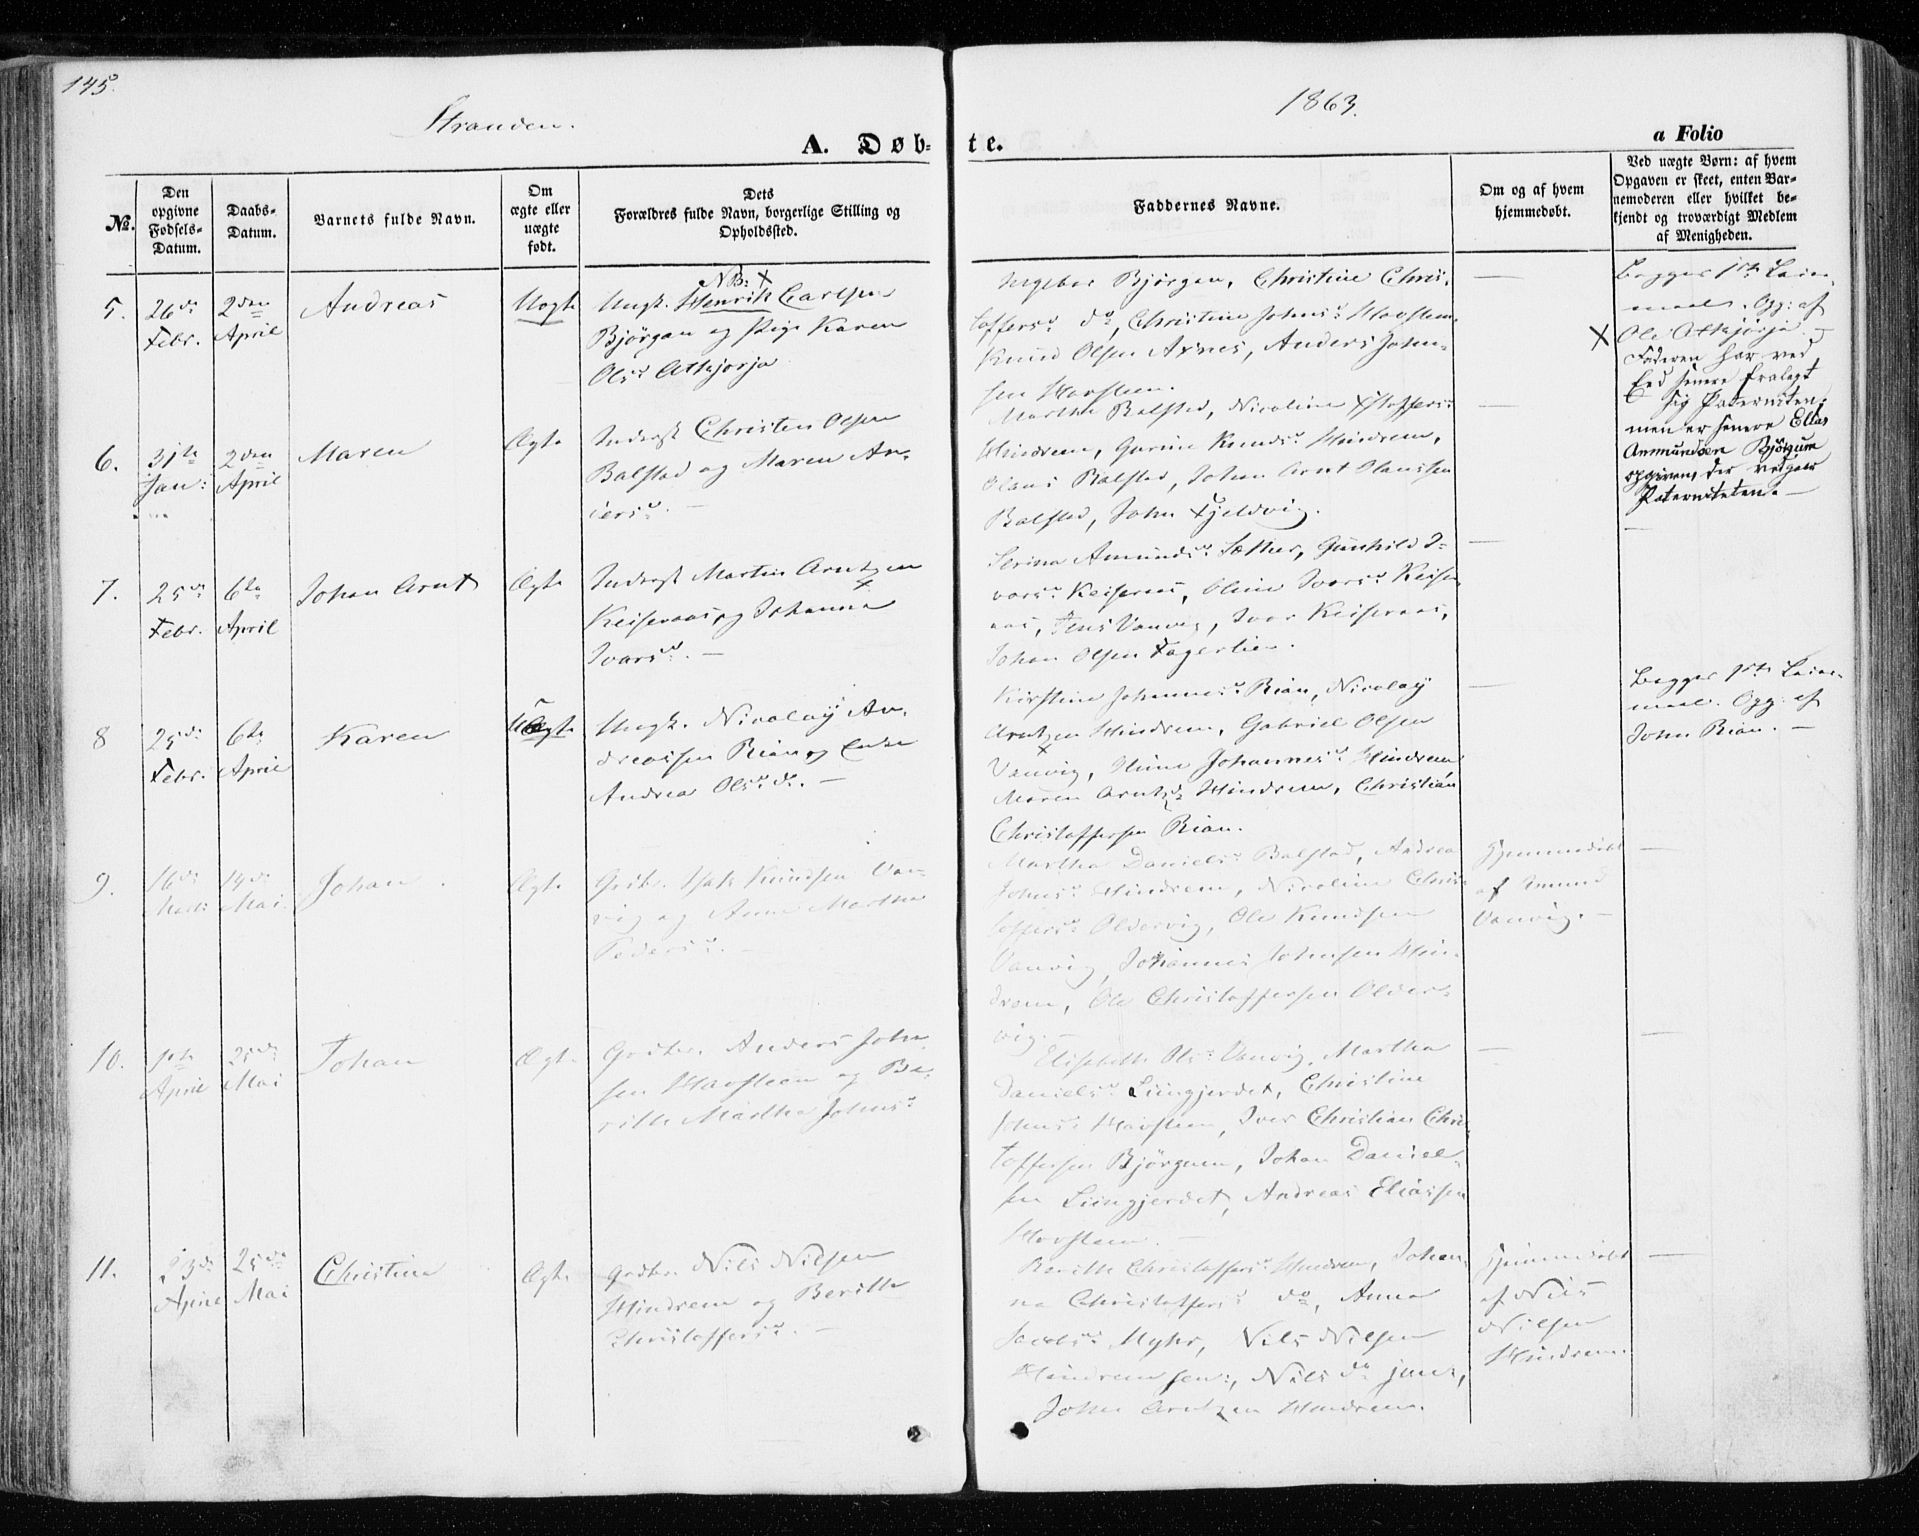 145.
Stranden.
1863.
A. Døb-
te.
a Folio
No.
Den opgivne Fødsels-Datum.
Daabs-Datum.
Barnets fulde Navn.
Om ægte eller uægte født.
Dets Forældres fulde Navn, borgerlige Stilling og Opholdssted.
Faddernes Navne.
Om og af hvem hjemmedøbt.
Ved uægte Børn: af hvem Opgaven er skeet, enten Barnemoderen eller hvilket bekjendt og troværdigt Medlem af Menigheden.
5.
26de Febr.
2den April
Andreas
Uægte
NB: X
Ungk. Henrik Carlsen
Björgan og Pige Karen
Olsd. Atkjørja
Ingebor Björgan, Christine Chris-
toffersd. do, Christine Johnsd. Hovsteen
Knud Olsen Axnes, Anders John-
sen Hovsteen.
—
Begges 1ste Leier-
maal. Opg: af
X Ole Atkjørja.
Faderen har ved
Eed senere fralagt
sig Paterniteten;
men er senere Elias
Anmundsen Björgum
opgiven, der vedgaar
Paterniteten. —
6.
31te Jan:
2den April
Maren
Ægte
Inderst Christen Olsen
Balstad og Maren An-
dersd. —
Martha Balstad, Nicoline Xstoffersd.
Hindrem, Gurine Knudsd. Hindrem,
Olaus Balstad, Johan Arnt Olaussen
Balstad, John Fjeldvig.
—
—
7.
25de Febr.
6te April
Johan Arnt
Ægte
Inderst Martin Arntzen
Keiseraas og Johanna
Ivarsd. —
Serina Amundsd. Sæther, Gunhild I-
varsd. Keiseraas, Oline Ivarsd. Keiser-
aas, Jens Vanvig, Ivar Keiseraas,
Johan Olsen Fagerlien.
—
8
25de Febr.
6te April
Karen
Uægte
Ungk. Nicolay An-
dreassen Rian og Enke
Andrea Olsd. do. —
Kirstine Johannesd. Rian, Nicolay
Arntzen Hindrem, Gabriel Olsen
Vanvig, Stine Johannesd. Hindrem
Maren Arntzd. Hindrem, Christian
Christoffersen Rian.
—
Begges 1ste Leier-
maal. Opg: af
John Rian. —
9.
16de Marts
14de Mai.
Johan
Ægte
Grdbr. Isak Knudsen Van-
vig og Anne Martha
Pedersd. —
Martha Danielsd. Balstad, Andrea
Johnsd. Hindrem, Nicoline Chris-
toffersd. Oldervig, Ole Knudsen
Vanvig, Johannes Johnsen Hin-
drem, Ole Christoffersen Older-
vig. —
Hjemmedøbt
af Amund
Vanvig. —
—
10.
1ste April
25de Mai
Johan
Ægte
Grdbr. Anders John-
sen Havsteen og Be-
rith Martha Johnsd.
Elisabeth Olsd. Vanvig, Martha
Danielsd. Liungjerdet, Christine
Johnsd. Havsteen, Iver Christian Chris-
toffersen Björgum, Johan Daniel-
sen Liungjerdet, Andreas Eliassen
Hovsteen. —
—
—
11.
23de April
25de Mai
Christine
Ægte
Grdbr. Nils Nilsen
Hindrem og Berith
Christoffersd. —
Berith Christoffersd. Hindrem, Johan-
na Christoffersd. do, Anna
Jacobsd. Myhr, Nils Nilsen
Hindrem sen:, Nils do jun:,
John Arntzen Hindrem.
Hjemmedøbt
af Nils
Nilsen
Hindrem.
—